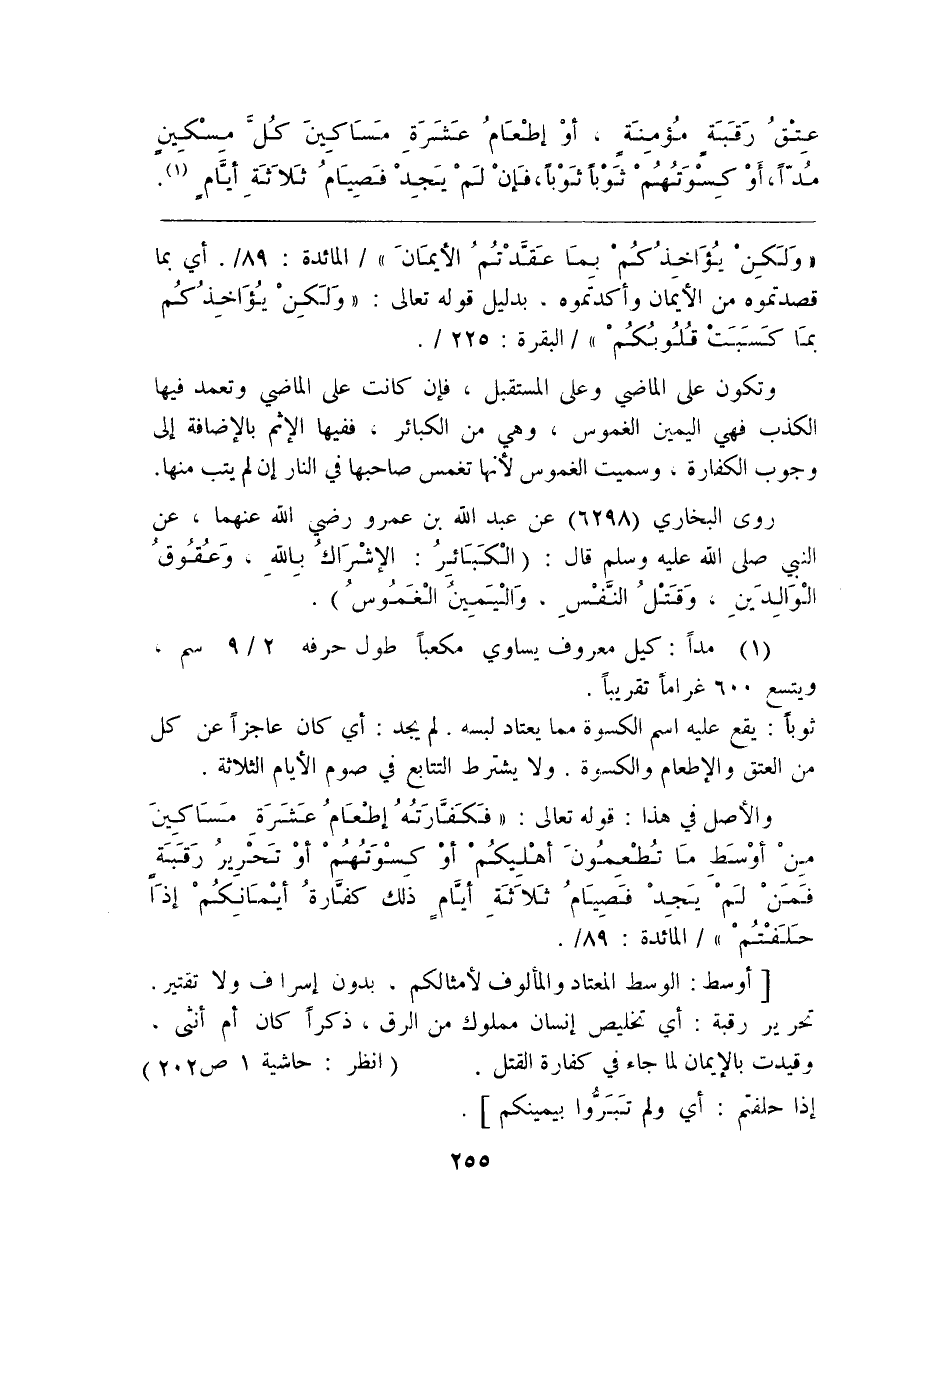 عِتْقُ رَقَبَةٍ مُؤمِنةٍ ، أوْ إطْعَامُ عَشَرَةِ مَسَاكِينَ كُلَّ مِسْكِينٍ
مُدّاً، أَوْ كِسْوَتُهُمْ ثَوْباً ثَوْباً، فَإنْ لَمْ يَجِدْ فَصِيَامُ ثَلاَثَةِ أيَّامٍ (١).
« وَلَكِنْ يُؤَاخِذُكُمْ بِمَا عَقَّدْتُمُ الأيمَانَ » / المائدة : ٨٩/ . أي بما
قصدتموه من الأيمان وأكدتموه . بدليل قوله تعالى : « وَلَكِنْ يُؤَاخِذُكُم
بمَا كَسَبَتْ قُلُوبُكُمْ » / البقرة : ٢٢٥ / .
وتكون على الماضي وعلى المستقبل ، فإن كانت على الماضي وتعمد فيها
الكذب فهي اليمين الغموس ، وهي من الكبائر ، ففيها الإثم بالإضافة إلى
وجوب الكفارة ، وسميت الغموس لأنها تغمس صاحبها في النار إن لم يتب منها.
روى البخاري (٦٢٩٨) عن عبد الله بن عمرو رضي الله عنهما ، عن
النبي صلى الله عليه وسلم قال : ( الْكَبَائِرُ : الإشْرَاكُ بِاللهِ ، وَعُقُوقُ
الْوَالِدَينِ ، وَقَتْلُ النَّفْسِ . وَالْيَمِينُ الْغَمُوسُ ) .
(١) مداً : كيل معروف يساوي مكعباً طول حرفه ٩/٢ سم ،
ويتسع ٦٠٠ غراماً تقريباً .
ثوباً : يقع عليه اسم الكسوة مما يعتاد لبسه . لم يجد : أي كان عاجزاً عن كل
من العتق والإطعام والكسوة . ولا يشترط التتابع في صوم الأيام الثلاثة .
والأصل في هذا : قوله تعالى : « فَكَفَّارَتُهُ إطْعَامُ عَشَرَةِ مَسَاكِينَ
مِنْ أوْسَطِ مَا تُطْعِمُونَ أهْلِيكُمْ أوْ كِسْوَتُهُمْ أوْ تَحْرِيرُ رَقَبَةٍ
فَمَنْ لَمْ يَجِدْ فَصِيَامُ ثَلاَثَةِ أيَّامٍ ذلك كَفَّارةُ أيْمَانِكُمْ إذَا
حلَفَتْمُ » / المائدة : ٨٩/ .
[ أوسط : الوسط المعتاد والمألوف لأمثالكم . بدون إسراف ولا تقتير .
تحرير رقبة : أي تخليص إنسان مملوك من الرق ، ذكراً كان أم أنثى .
وقيدت بالإيمان لما جاء في كفارة القتل . ( انظر : حاشية ١ ص٢٠٢ )
إذا حلفتم : أي ولم تَبَرُّوا بيمينكم ] .
٢٥٥